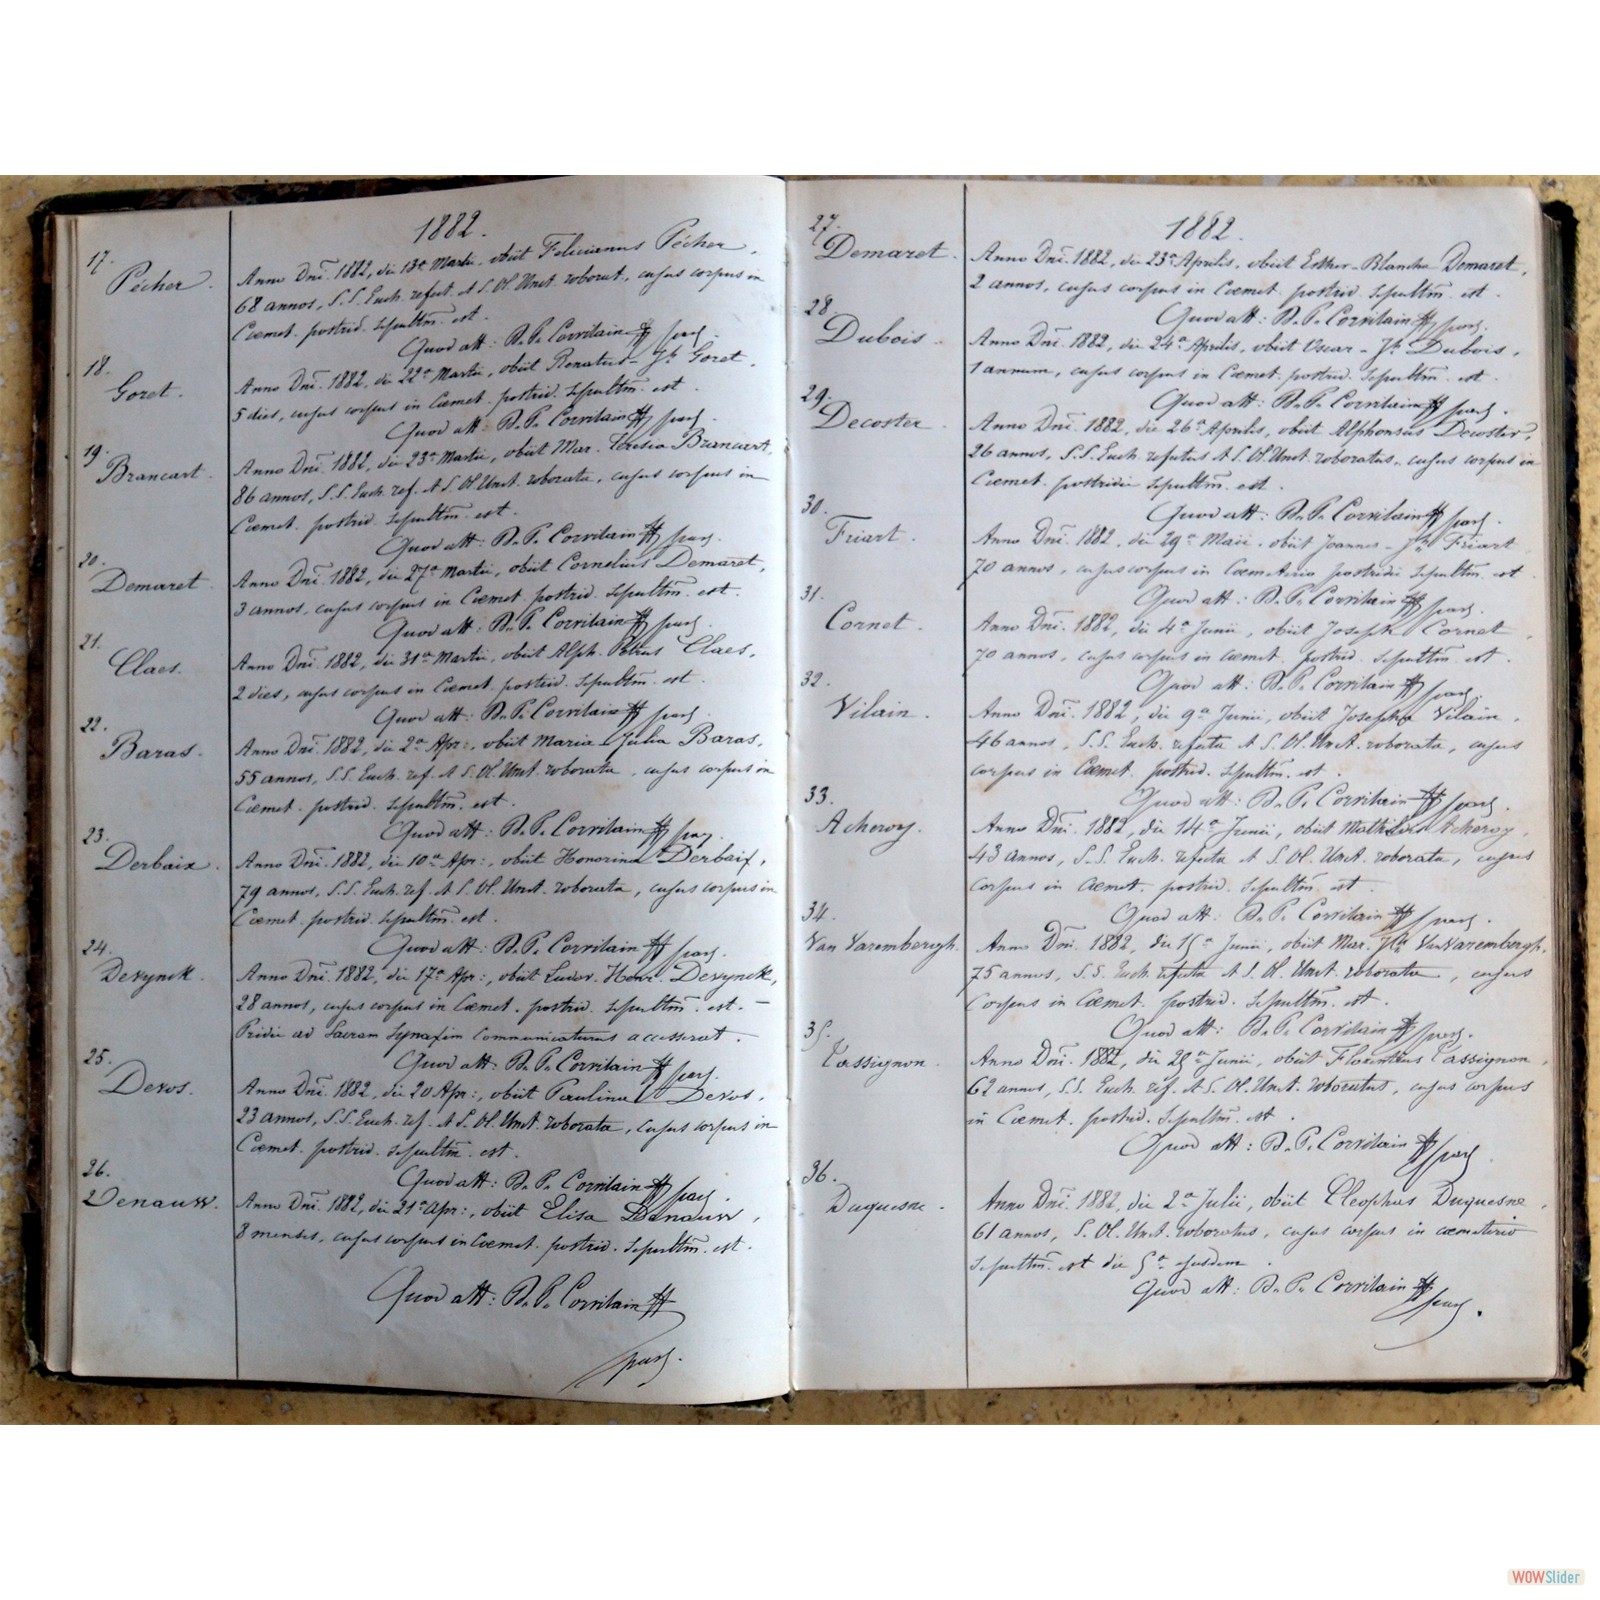 1882.
17.
Pécher.
Anno Dni. 1882, die 13a Martii, obiit Felicianus Pécher,
68 annos, S.S. Euch. refect. et S. Ol. Unct. roborat., cujus corpus in
Cœmet. postrid. sepultm. est.
Quod att: B. P. Corvilain par.
18.
Goret.
Anno Dni. 1882, die 22a Martii, obiit Renatus-Jh Goret,
5 dies, cujus corpus in Cœmet. postrid. sepultm. est.
Quod att: B. P. Corvilain par.
19.
Brancart.
Anno Dni. 1882, die 23a Martii, obiit Mar. Theresia Brancart,
86 annos, S.S. Euch. ref. et S. Ol. Unct. roborata, cujus corpus in
Cœmet. postrid. sepultm. est.
Quod att: B. P. Corvilain par.
20.
Demaret
Anno Dni. 1882, die 27a Martii, obiit Cornelius Demaret,
3 annos, cujus corpus in Cœmet. postrid. sepultm. est.
Quod att: B. P. Corvilain par.
21.
Claes.
Anno Dni. 1882, die 31a Martii, obiit Alph. Petrus Claes,
2 dies, cujus corpus in Cœmet. postrid. sepultm. est.
Quod att: B. P. Corvilain par.
22.
Baras.
Anno Dni. 1882, die 2a Apr:, obiit Maria-Julia Baras,
55 annos, S.S. Euch. ref. et S. Ol. Unct. roborata, cujus corpus in
Cœmet. postrid. sepultm. est.
Quod att: B. P. Corvilain par.
23.
Derbaix.
Anno Dni. 1882, die 10a Apr:, obiit Honorina Derbaix,
79 annos, S.S. Euch. ref. et S. Ol. Unct. roborata, cujus corpus in
Cœmet. postrid. sepultm. est.
Quod att: B. P. Corvilain par.
24.
Devynck.
Anno Dni. 1882, die 17a Apr:, obiit Ludov. Henr. Devynck,
28 annos, cujus corpus in Cœmet. postrid. sepultm. est. –
Pridie ad Sacram Synaxim communicaturus accesserat.
Quod att: B. P. Corvilain par.
25.
Devos.
Anno Dni. 1882, die 20 Apr:, obiit Paulina Devos,
23 annos, S.S. Euch. ref. et S. Ol. Unct. roborata, cujus corpus in
Cœmet. postrid. sepultm. est.
Quod att: B. P. Corvilain par.
26.
Denauw.
Anno Dni. 1882, die 21a Apr:, obiit Elisa Denauw,
8 menses, cujus corpus in Cœmet. postrid. sepultm. est.
Quod att: B. P. Corvilain
par.
1882.
27.
Demaret.
Anno Dni. 1882, die 23a Aprilis, obiit Esther-Blancha Demaret,
2 annos, cujus corpus in Cœmet. postrid. sepultm. est.
Quod att: B. P. Corvilain par.
28.
Dubois.
Anno Dni. 1882, die 24a Aprilis, obiit Oscar-Jh Dubois,
1 annum, cujus corpus in Cœmet. postrid. sepultm. est.
Quod att: B. P. Corvilain par.
29.
Decoster.
Anno Dni. 1882, die 26a Aprilis, obiit Alphonsus Decoster,
26 annos, S.S. Euch. refectus et S. Ol. Unct. roboratus, cujus corpus in
Cœmet. postridie sepultm. est.
Quod att: B. P. Corvilain par.
30.
Friart.
Anno Dni. 1882, die 29a Maii, obiit Joannes-Jh Friart
70 annos, cujus corpus in Cœmeterio postridie sepultm. est.
Quod att: B. P. Corvilain par.
31.
Cornet.
Anno Dni. 1882, die 4a Junii, obiit Joseph Cornet,
70 annos, cujus corpus in cœmet. postrid. sepultm. est.
Quod att: B. P. Corvilain par.
32.
Vilain.
Anno Dni. 1882, die 9a Junii, obiit Josepha Vilain,
46 annos, S.S. Euch. refecta et S. Ol. Unct. roborata, cujus
corpus in Cœmet. postrid. sepultm. est.
Quod att: B. P. Corvilain par.
33.
Acheroy.
Anno Dni. 1882, die 14a Junii, obiit Mathildis Acheroy,
43 annos, S.S. Euch. refecta et S. Ol. Unct. roborata, cujus
corpus in cœmet. postrid. sepultm. est.
Quod att: B. P. Corvilain par.
34.
Van Varembergh.
Anno Dni. 1882, die 15a Junii, obiit Mar. Jha Van Varembergh,
75 annos, S.S. Euch. refecta et S. Ol. Unct. roborata, cujus
Corpus in Cœmet. postrid. sepultm. est.
Quod att: B. P. Corvilain par.
35.
Tassignon.
Anno Dni. 1882, die 25a Junii, obiit Florentinus Tassignon,
62 annos, S.S. Euch. ref. et S. Ol. Unct. roboratus, cujus corpus
in Cœmet. postrid. sepultm. est.
Quod att: B. P. Corvilain par.
36.
Duquesne.
Anno Dni. 1882, die 2a Julii, obiit Cleophas Duquesne,
61 annos, S. Ol. Unct. roboratus, cujus corpus in cœmeterio
sepultm. est die 5a ejusdem.
Quod att: B. P. Corvilain
par.
WOWSlider